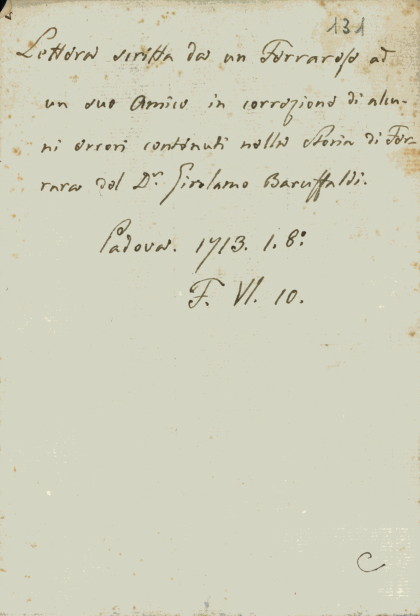 131
Lettera scritta da un Ferrarese ad
un suo Amico in correzione di alcu-
ni errori contenuti nella Storia di Fer-
rara del Dr. Girolamo Baruffaldi.
Padova. 1713. 1. 8°
F. VI. 10.
C